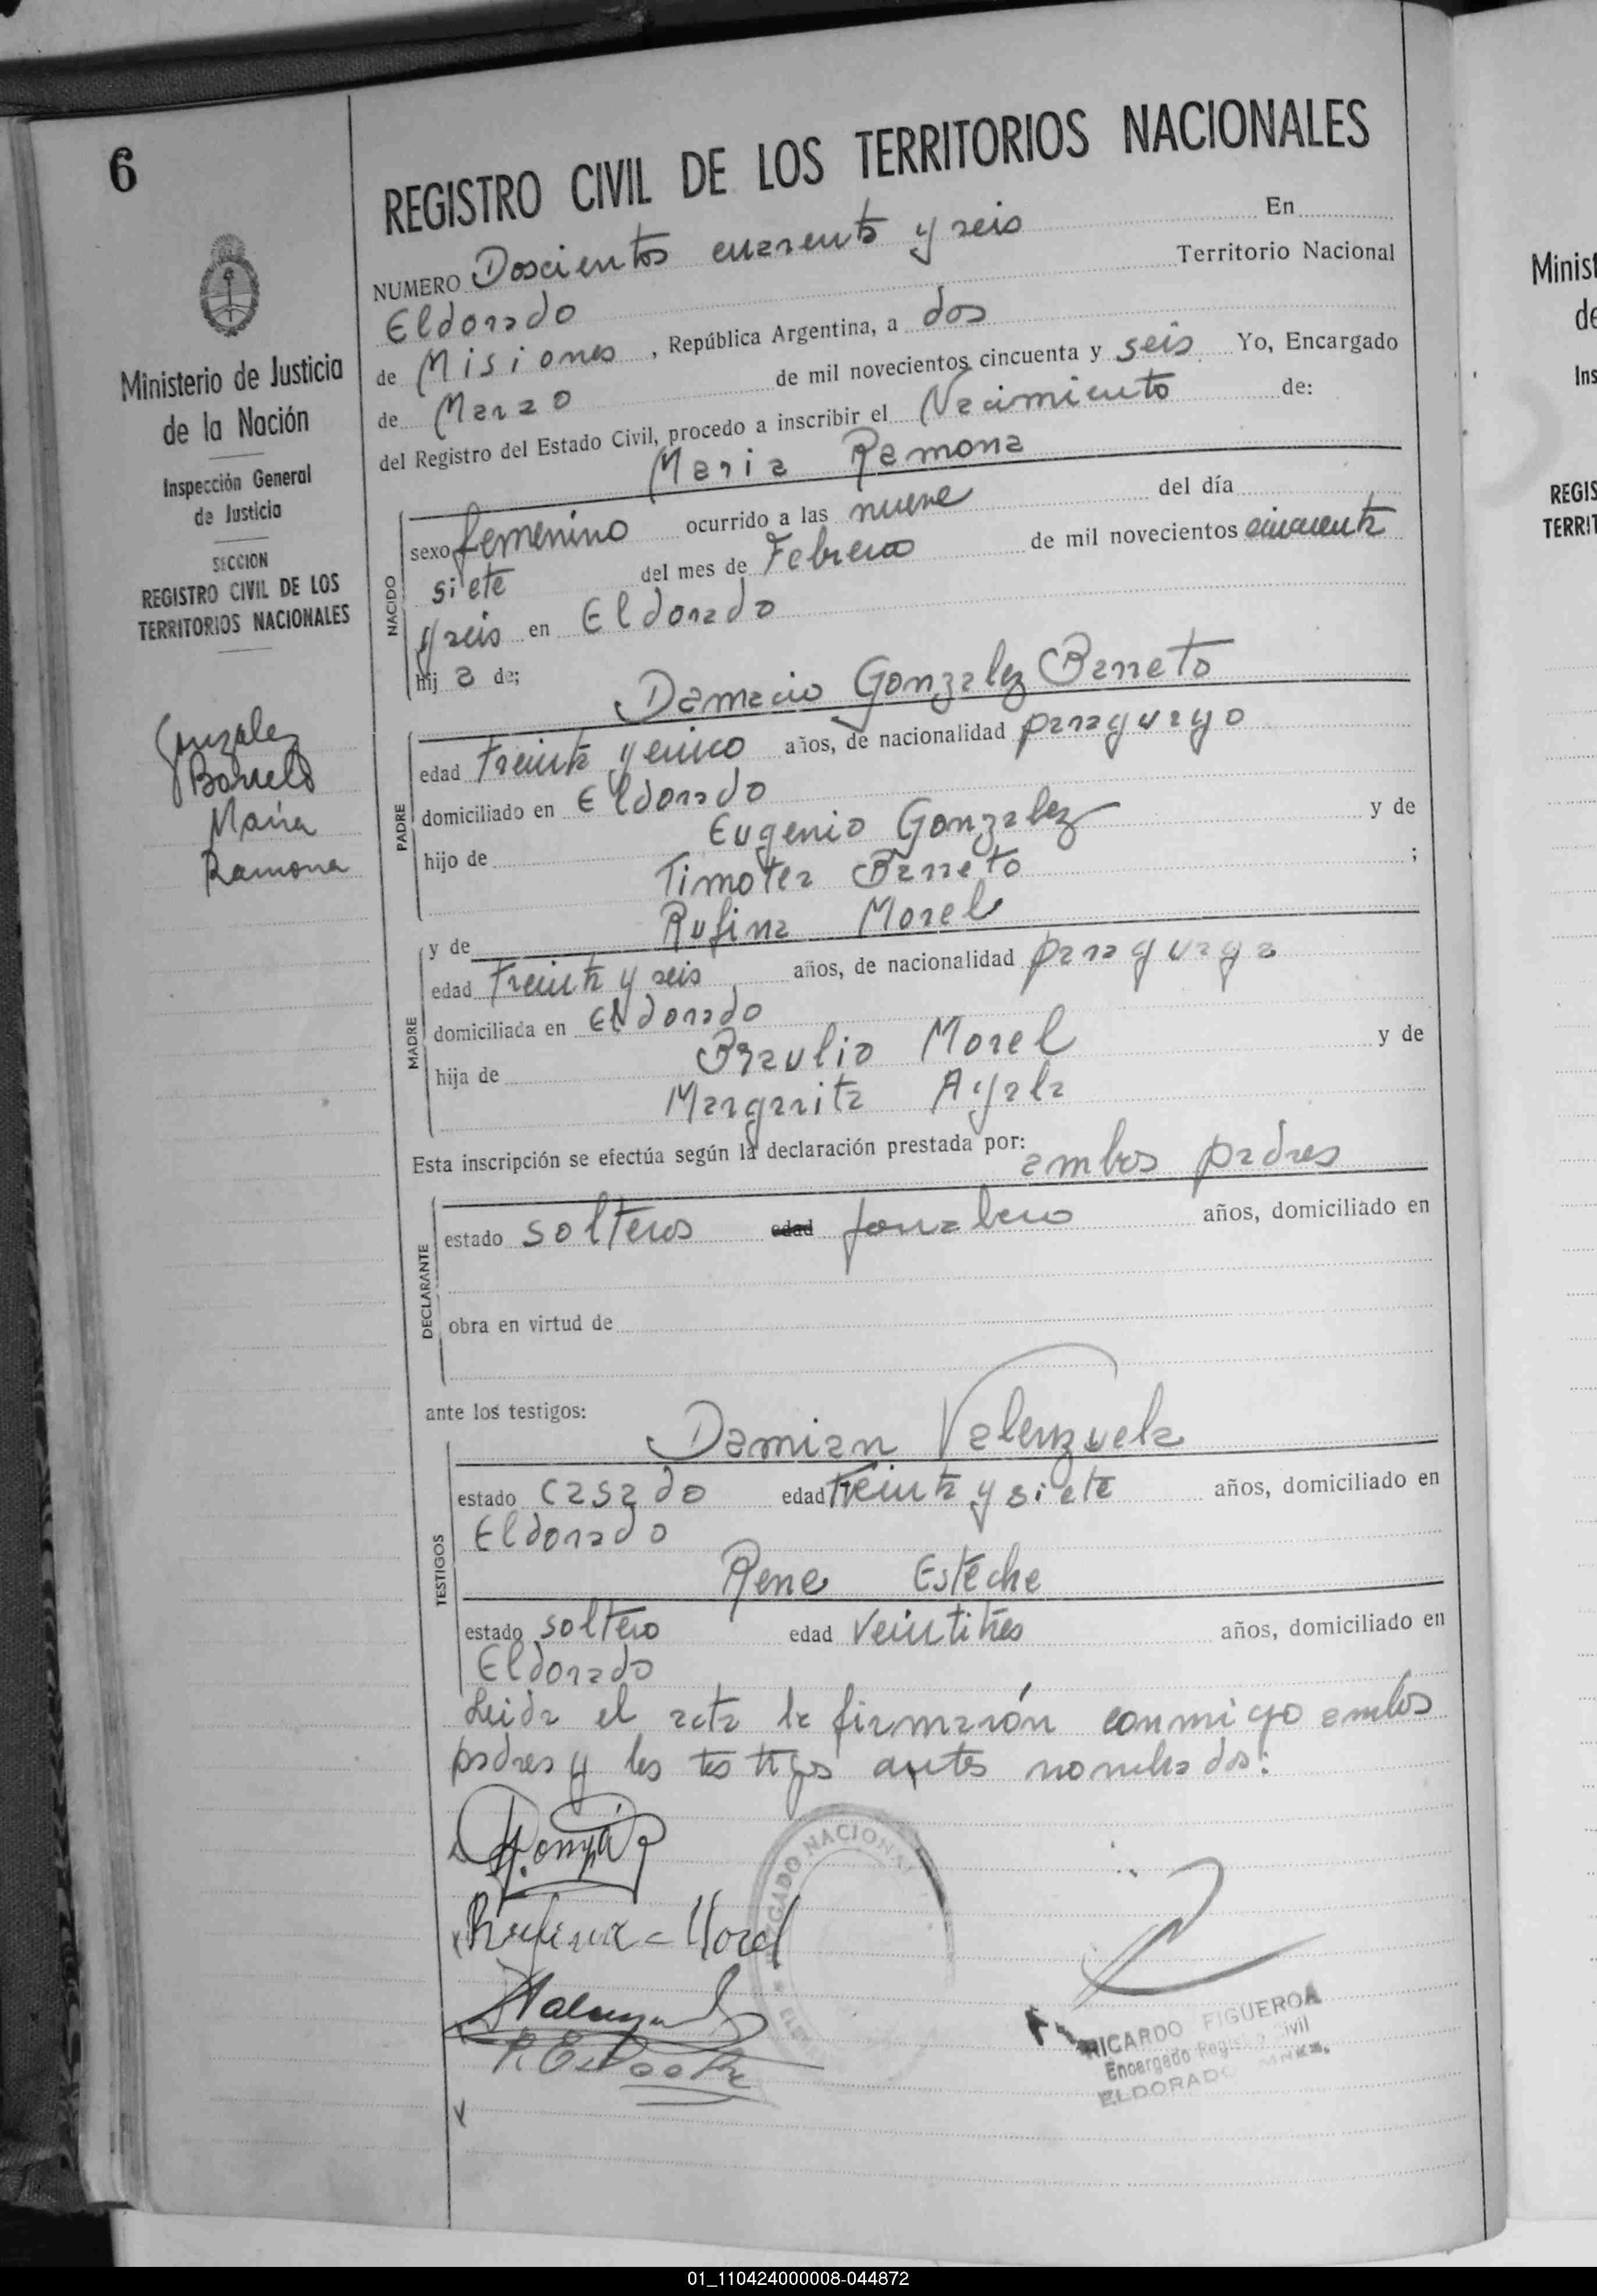 6
Ministerio de Justicia
de la Nación
Inspección General
de Justicia
SECCION
REGISTRO CIVIL DE LOS
TERRITORIOS NACIONALES
Gonzalez
Barreto
Maria
Ramona
REGISTRO CIVIL DE LOS TERRITORIOS NACIONALES
NUMERO Doscientos cuarenta y seis En
Eldorado Territorio Nacional
de Misiones, República Argentina, a dos
de Marzo de mil novecientos cincuenta y seis. Yo, Encargado
del Registro del Estado Civil, procedo a inscribir el Nacimiento de:
Maria Ramona
NACIDO
sexo femenino ocurrido a las nueve del día
siete del mes de Febrero de mil novecientos cincuenta
y seis en Eldorado
hij a de;
Damacio Gonzalez Barreto
PADRE
edad treinta y cinco años, de nacionalidad paraguayo
domiciliado en Eldorado
hijo de Eugenio Gonzalez y de
Timotea Barreto ;
y de Rufina Morel
MADRE
edad treinta y seis años, de nacionalidad paraguaya
domiciliada en Eldorado
hija de Braulio Morel y de
Margarita Ayala
Esta inscripción se efectúa según la declaración prestada por: ambos padres
DECLARANTE
estado solteros edad años, domiciliado en
obra en virtud de
ante los testigos:
Damian Valenzuela
TESTIGOS
estado casado edad treinta y siete años, domiciliado en
Eldorado
Rene Esteche
estado soltero edad veintitres años, domiciliado en
Eldorado
Leida el acta la firmarón conmigo ambos
padres y los testigos antes nombrados:
Rufina Morel
JUZGADO NACIONAL
RICARDO FIGUEROA
Encargado Registro Civil
ELDORADO
Minist
de
Ins
REGIS
TERRIT
01_110424000008-044872